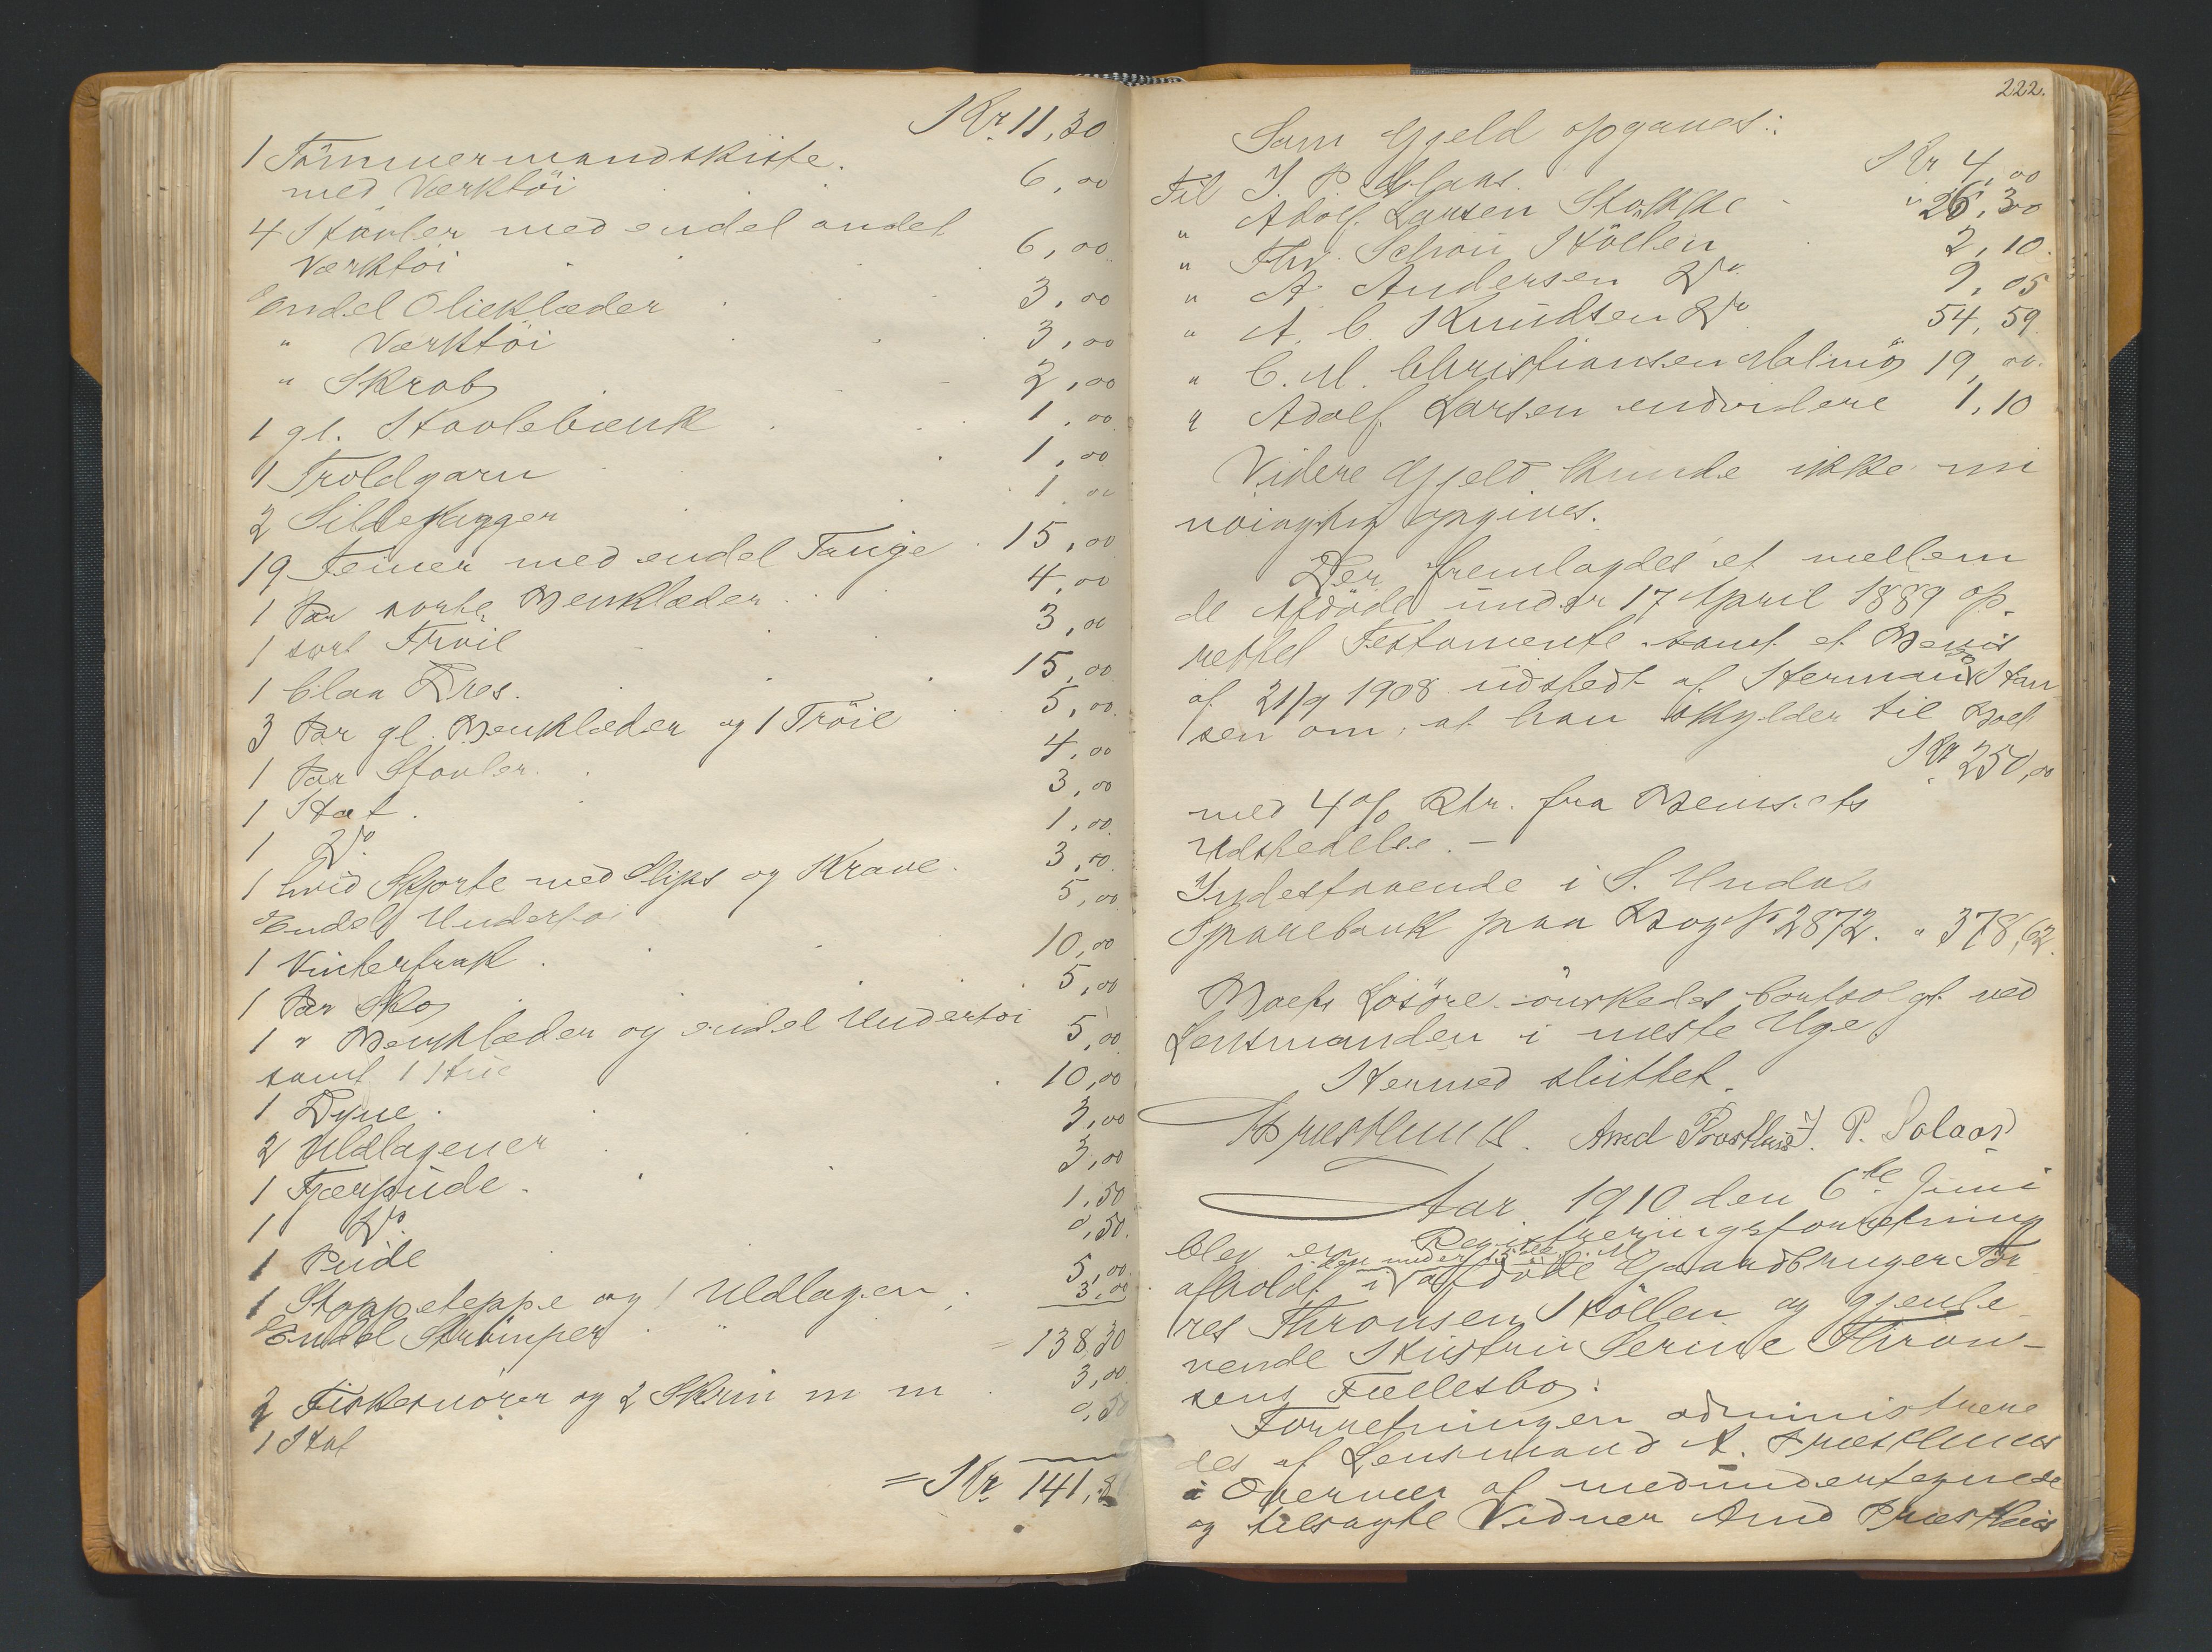 Kr. 11,30
1 Tömmermandskiste
med Værktöi 6,00
4 Hövler med endel andet
Værktöi 6,00
Endel Olieklæder 3,00
" Værktöi 3,00
" Skrab 2,00
1 gl. Hövlebænk 1,00
1 Troldgarn 1,00
2 Sildegarn 1,00
19 Teiner med endel Tauge 15,00
1 Par sorte Benklæder 4,00
1 sort Tröie 3,00
1 blaa Dres. 15,00
3 Par gl. Benklæder og 1 Tröie 5,00
1 Par Støvler 4,00
1 Hat 3,00
1 Do 1,00
1 hvid Skjorte med Slips og Krave 3,00
Endel Undertøi 5,00
1 Vinterfrak 10,00
1 Par Sko 5,00
1 " Benklæder og endel Undertøi
samt 1 Hue 5,00
1 Dyne 10,00
2 Uldlagener 3,00
1 Fjærpude 3,00
1 Do 1,50
1 Pude 0,50
1 Stoppeteppe og 1 Uldlagen 5,00
Endel Strömper 3,00
= 138,30
2 Fiskesnører og 2 Skrin m m 3,00
1 Hat 0,50
= Kr. 141,8
222.
Som Gjeld opgaves:
Til J. P. Kr 4,00
" Adolf Larsen Stokke " 26,30
" Thv. Schou Höllen 2,10
" A. Andersen Do 9,05
" A. C. Knudsen Do 54,59
" C. M. Christiansen Malmö 19,00
" Adolf Larsen endvidere 1,10
Videre Gjeld kunde ikke nu
nöiagtig opgives.
Der fremlagdes et mellem
de Afdöde under 17 April 1889 op-
rettet Testamente samt et Bevis
af 21/9 1908 udstedt af Herman Han
sen om, at han skylder til Boet
Kr. 250,00
med 4 % Rtr. fra Bevisets
Udstedelse. -
Indestaaende i S. Undals
Sparebank paa Bog No 2872. " 378,62.
Boets Lösöre önskedes bortsolgt ved
Lensmanden i næste Uge
Hermed sluttet.
APræsthuus. Arnd Præsthus J. P. Solaas
Aar 1910 den 6te Juni
blev en Registreringsforretning
afholdt i afdöde Gaardbruger Tor
res Thronsen, Höllen og gjenle
vende Hustru Serine Thron-
sens Fællesbo:
Forretningen administrere
des af Lensmand A. Præsthuus
i Overvær af medundertegnede
og tilsagte Vidner Arnd Præsthus